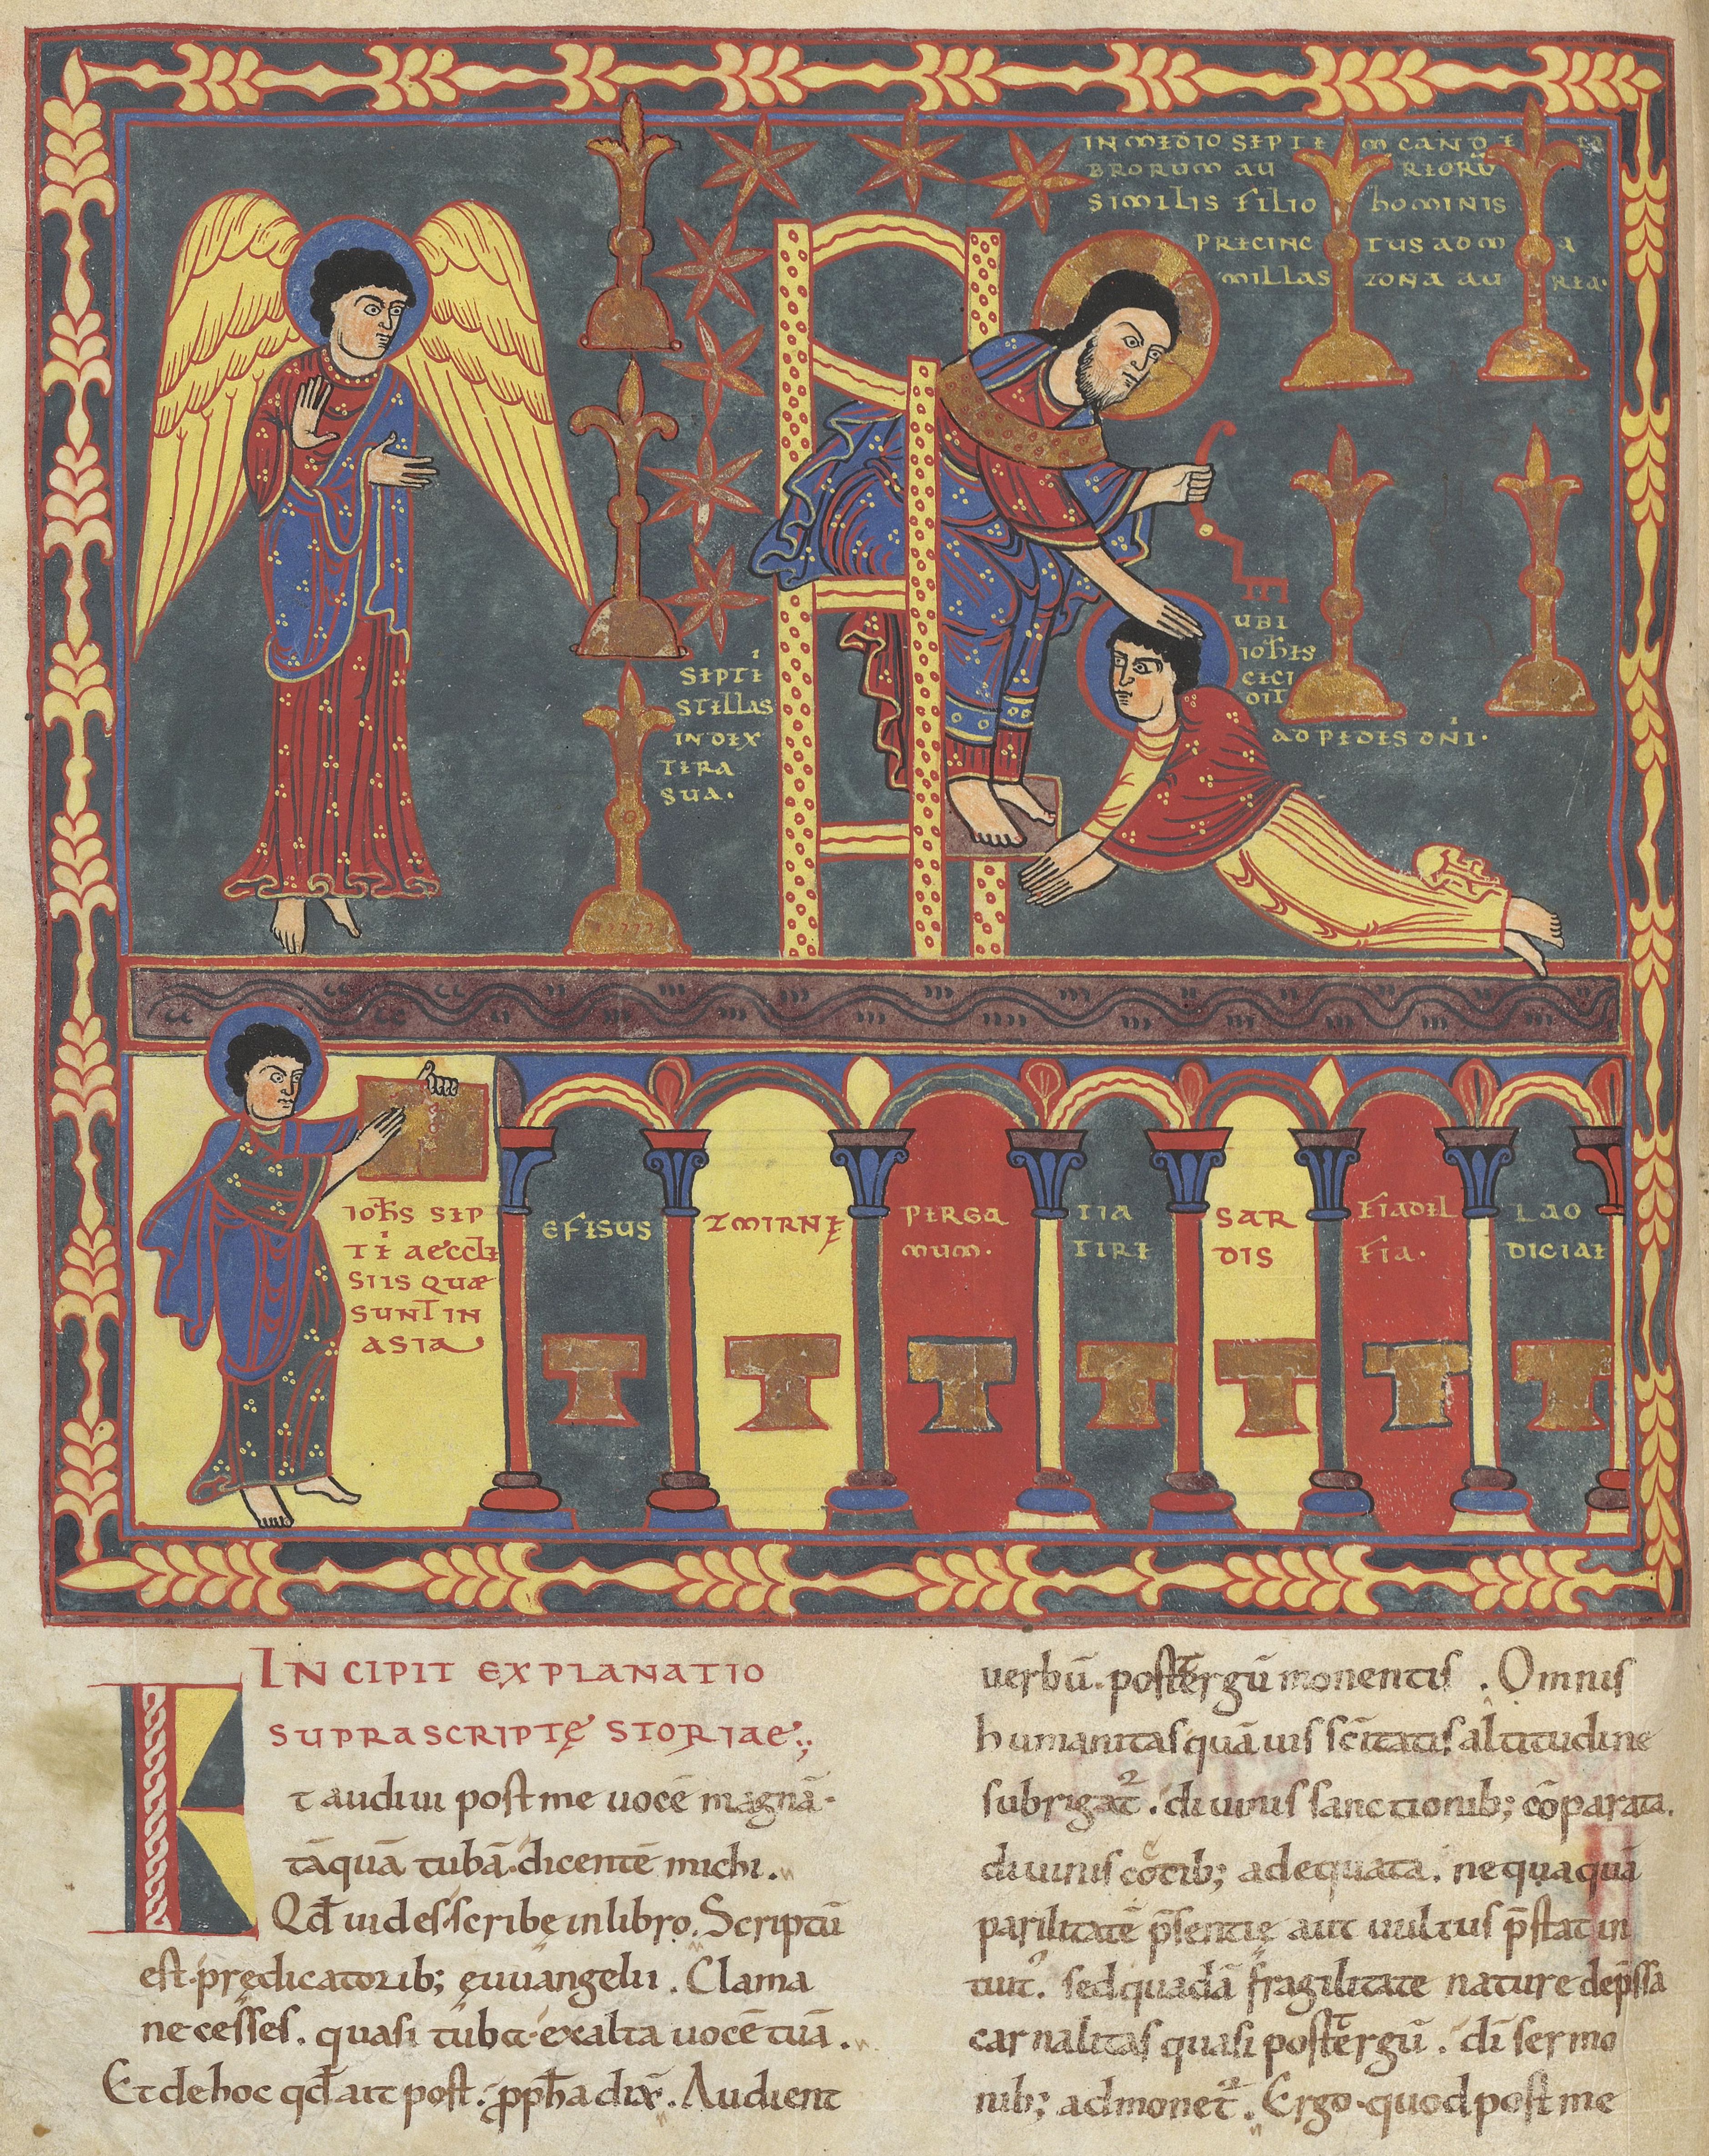 IN MEDIO SEPTE M CANDE LA
BRORUM AU REORŪ
SIMILIS FILIO HOMINIS
PRECINC TUS AD M A
MILLAS ZONA AU REA·
UBI
IOHĒS
CECI
DIT
AD PEDES DNI·
SEPTE
STELLAS
IN DEX
TERA
SUA·
IOHS SEP
TE AECCLE
SIIS QUAE
SUNT IN
ASIA
EFESUS
ZMIRNĘ
PERGA
MUM·
TIA
TIRE
SAR
DIS
FIADEL
FIA·
LAO
DICIAE
INCIPIT EXPLANATIO
SUPRASCRIPTĘ STORIAE·,
Et audiui post me uocē magnā·
tāquā tubā·dicentē michi.
Qđ uides·scribę in libro. Scriptū
est·prędicatorib; ęuuangelii. Clama
ne cesses. quasi tuba·exalta uocē tuā.
Et de hoc qđ ait post. ꝓpħa dix̄. Audient
verbū. post tergū monentis. Omnis
humanitas quāuis scītatis altitudine
subrigat̄. diuinis sanctionib; cōparata.
diuinis cotib; adequata. nequaquā
parilitatē p̄sentię aut uultus p̄stat in
tuit̄. sed quadā fragilitate nature dep̄ssa
carnalitas quasi post tergū. dī sermo
nib; admonet̄. Ergo·quod post me